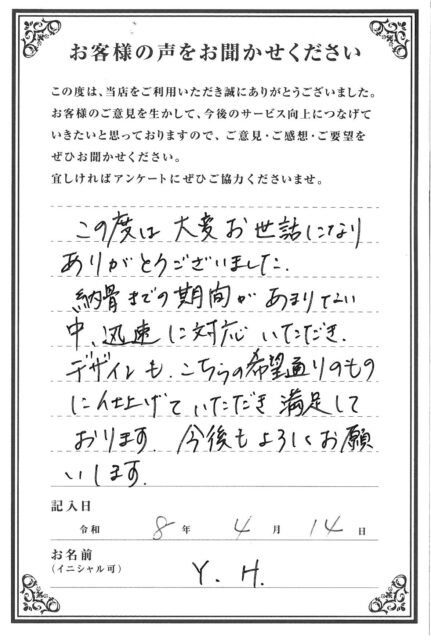 お客様の声をお聞かせください
この度は、当店をご利用いただき誠にありがとうございました。
お客様のご意見を生かして、今後のサービス向上につなげて
いきたいと思っておりますので、ご意見・ご感想・ご要望を
ぜひお聞かせください。
宜しければアンケートにぜひご協力くださいませ。
この度は 大変お世話になり
ありがとうございました.
納骨までの期間が あまりない
中、迅速に対応 いただき.
デザインも、こちらの希望通りのもの
に仕上げて いただき 満足して
おります. 今後もよろしくお願
いします.
記入日
令和 8 年 4 月 14 日
お名前
(イニシャル可)
Y. H.